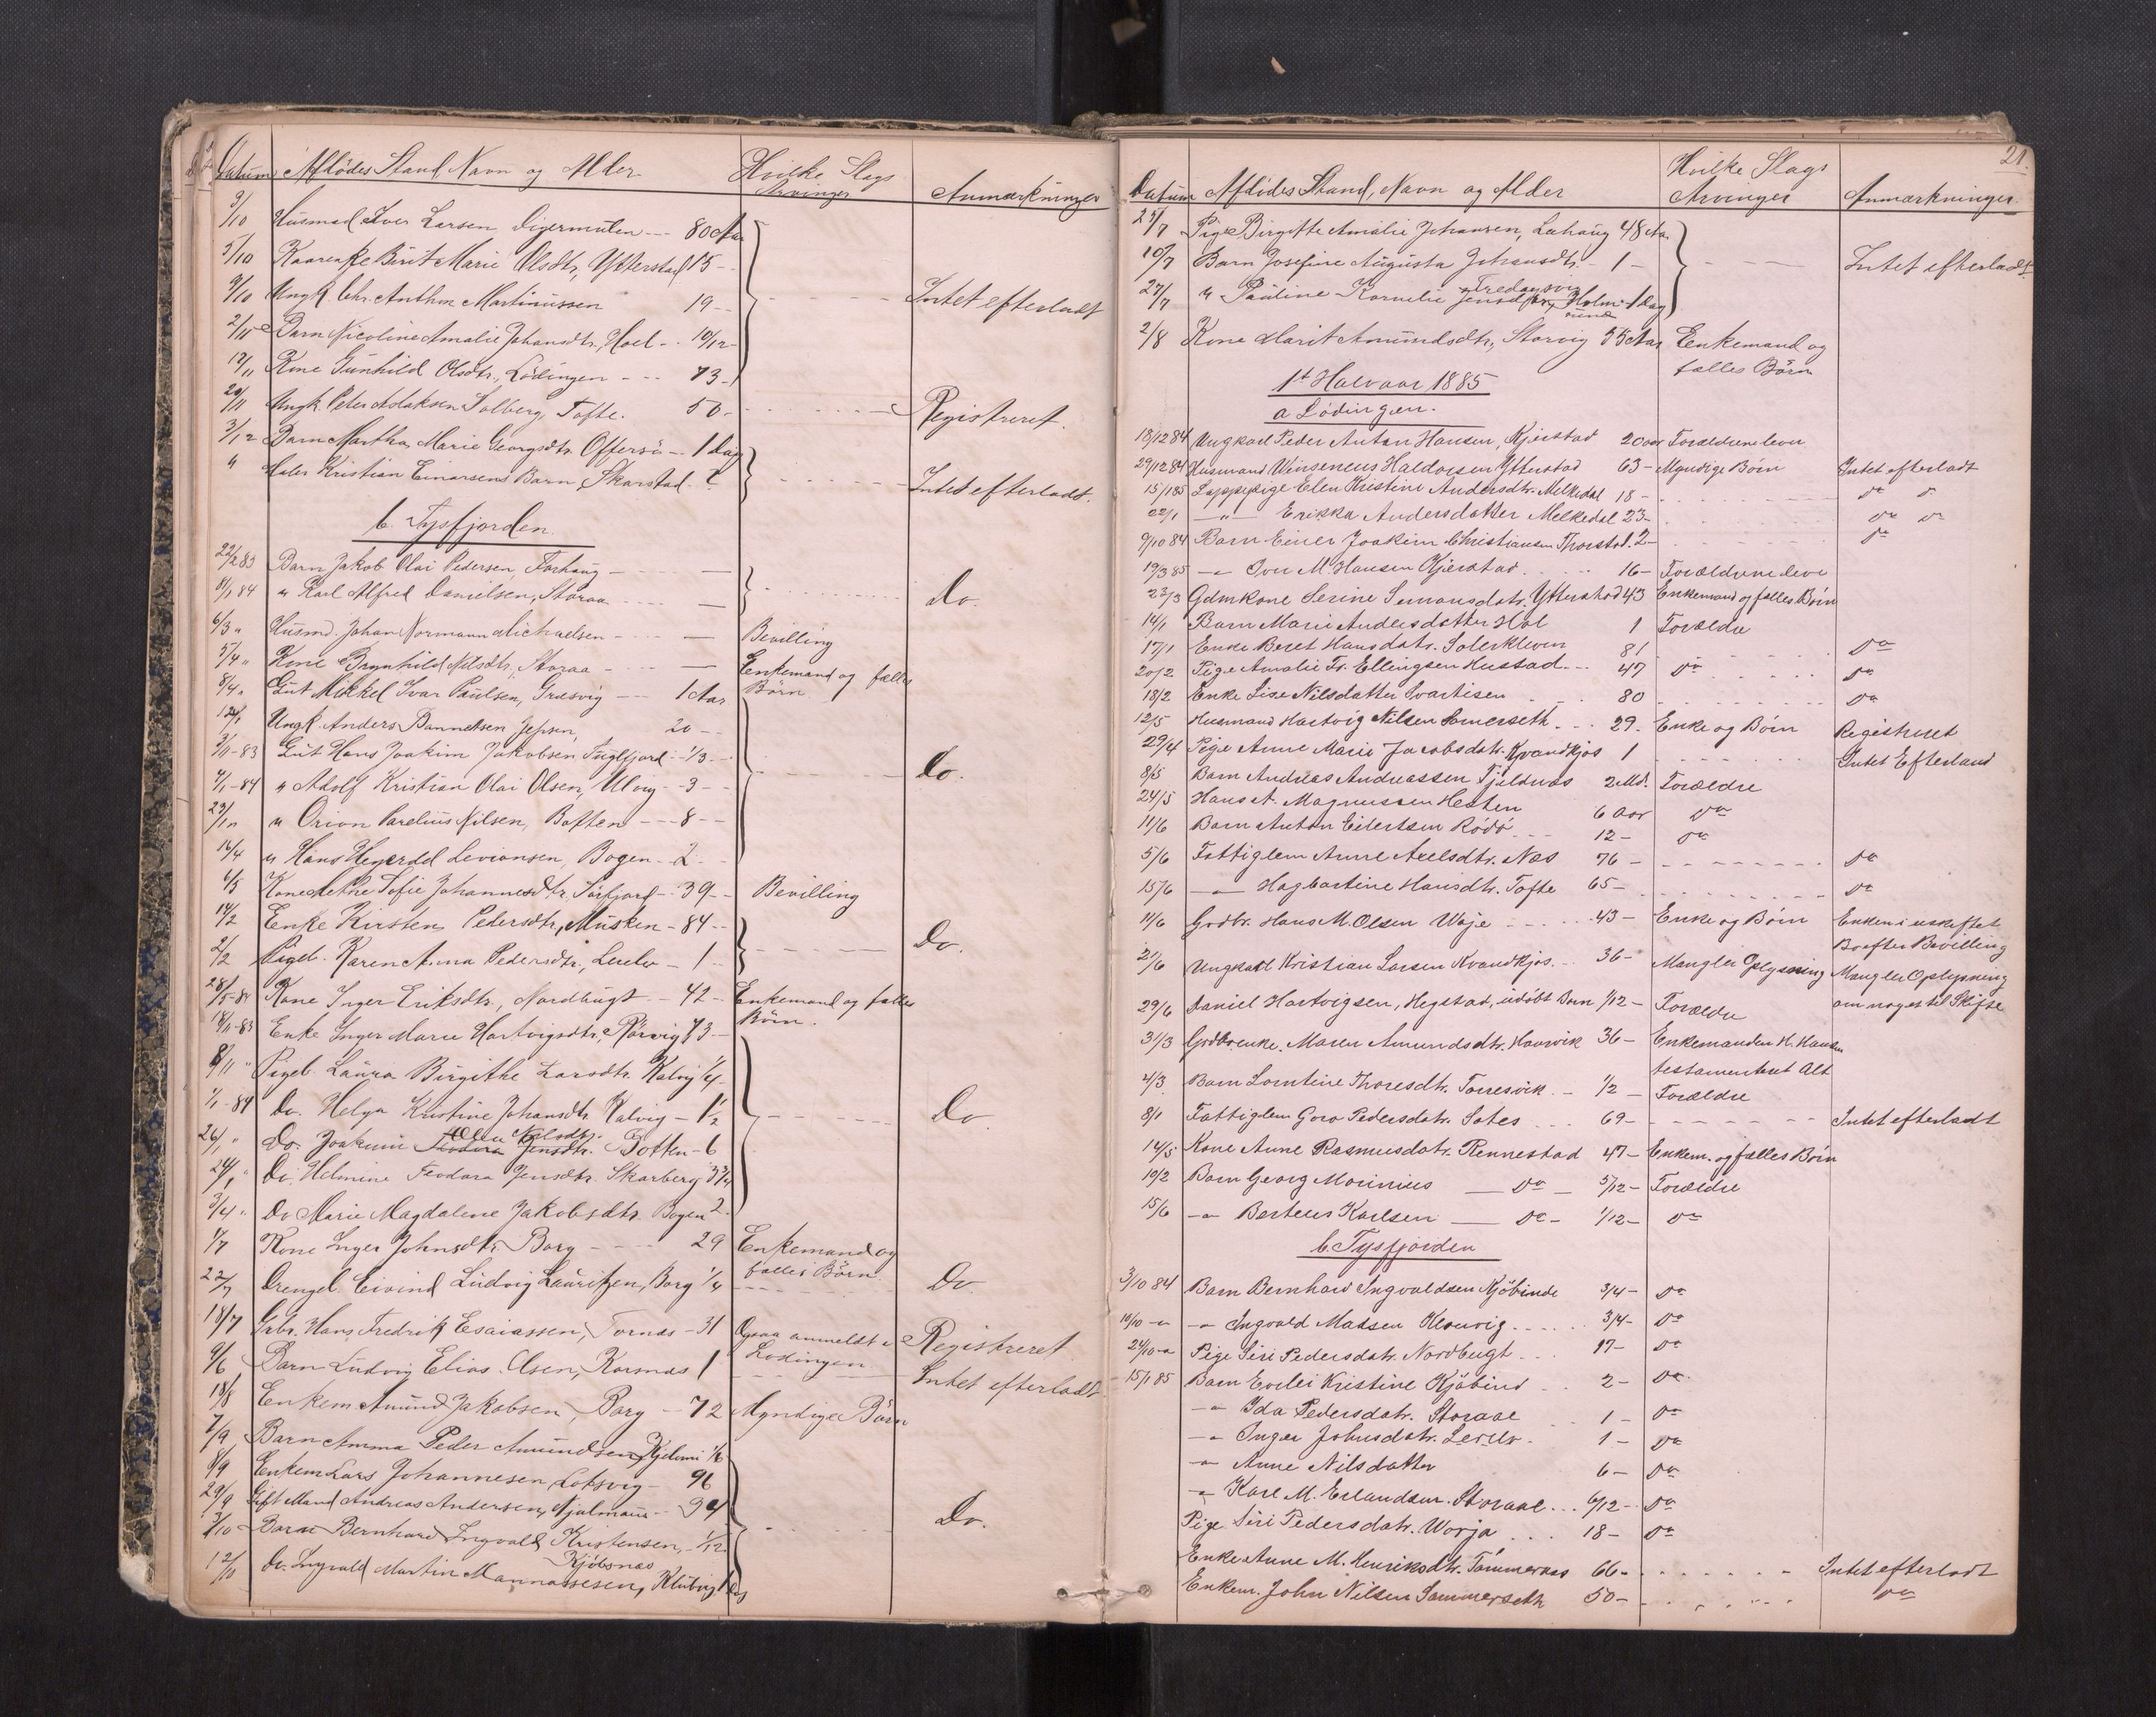 Datum Aflødes Stand Navn og Alder Hvilke Slags Arvinger Anmærkninger
3/10 Husmd Iver Larsen, Digermulen --- 80 Aar
5/10 Kaarenke Berit Marie Olsdtr, Ytterstad 15 -
9/10 Ungk. Chr. Anthon Martinussen 19 - Intet efterladt
2/11 Barn Nicoline Amalie Johansdtr, Hoel - 10/12 -
12/11 Kone Gunhild Olsdtr., Lödingen --- 73 -
20/11 Ungk. Peter Aslaksen Solberg, Tofte. 50 - Registreret.
3/12 Barn Martha Marie Georgsdtr. Offersö - 1 Dag
" Maler Kristian Einarsens Barn, Skarstad. ? Intet efterladt.
b. Tysfjorden
22/2 83 Barn Jakob Olai Pedersen, Forhaug
31/1 84 " Karl Alfred Danielsen, Storaa Do.
6/3 " Husmd. Johan Normann Michaelsen Bevilling
5/4 " Kone Brynhild Nilsdtr, Storaa Enkemand og fælles
8/4 " Gut Mikkel Ivar Paulsen, Græsvig --- 1 Aar Börn
12/1 Ungk. Anders Bannetsen Jepsen, 20 -
3/11-83 Gut Hans Joakim Jakobsen Fuglfjord - 1/3 - Do.
4/1-84 " Adolf Kristian Olai Olsen, Ulvig - 3 -
23/1 " " Orion Parelius Nilsen, Botten --- 8 -
16/4 " Hans Heyerdal Leviansen, Bogen - 2 -
6/5 Kone Sofie Johannesdtr, Sörfjord - 39 - Bevilling
14/2 Enke Kirsten Pedersdtr, Musken - 84 -
2/2 Pigeb. Karen Anna Pedersdtr, - 1 - Do.
28/5-84 Kone Inger Eriksdtr, Nordbugt - 42 - Enkemand og fælles
18/11-83 Enke Inger Marie Hartvigsdtr, Rörvig 73 - Börn.
8/11 " Pigeb. Laura Birgithe Larsdtr. Kalvig 1/4 -
1/1-84 Do. Helga Kristine Johansdtr Kalvig - 1 1/2 Do.
26/1 " Do. Joakimi Nilsdtr. Jensdtr. Botten - 6
24/1 " Do. Helmine Feodora Jensdtr Skarberg 3 3/4
3/4 " Do Marie Magdalene Jakobsdtr. Bogen 2 -
1/7 Kone Inger Johnsdtr Borg --- 29 Enkemand og
22/7 Drengeb. Eivind Ludvig Lauritzen, Borg 1/4 fælles Börn Do
18/7 Grbr. Hans Fredrik Esaiassen, Tornæs - 31 Ogsaa anmeldt i Lödingen Registreret
9/6 Barn Ludvig Elias Olsen, Korsnæs 1 Intet efterladt
18/8 Enkem Amund Jakobsen, Borg - 72 Myndige Börn
7/9 Barn Amma Peder Amundsen
8/9 Enkem Lars Johannesen, Lotsvig - 96
29/9 Gift Mand Andreas Andersen, 39 Do.
3/10 Barn Bernhard Ingvald Kristensen, - 1/12 -
Kjöbsnæs
12/10 Do. Ingvald Martin Mannassesen, Klubvig 1 Dag
21.
Datum Aflødes Stand, Navn og Alder Hvilke Slags Arvinger Anmærkninger
25/7 Pige Birgitte Amalie Johansen, Lœhaug 48 Aar
10/7 Barn Josefine Augusta Johansdtr. - 1 - Intet efterladt
27/7 " Pauline Kornelie Jensdtr, Tredagsvig Holm 1 Dag
2/8 Kone Marit Amundsdtr., Storvig 55 Aar Enkemand og
fælles Börn
1st Halvaar 1885
a Lödingen.
18/12 84 Ungkarl Peder Anton Hansen, Kjerstad 20 aar Forældrene lever
29/12 84 Husmand Winseneus Haldorsen Ytterstad 63 - Myndige Börn Intet efterladt
15/1 85 Lappepige Elen Kristine Andersdtr. Melkedal 18 - Do Do
22/1 -"- Erikka Andersdatter Melkedal 23 - Do Do
9/10 84 Barn Einer Joakim Christiansen Thorstad. 2 - Do
19/3 85 -"- Iver M Hansen Kjerstad 16 - Forældrene leve
23/3 Gdmkone Serine Simonsdatr. Ytterstad 43 Enkemand og fælles Börn
14/1 Barn Marie Andersdatter Hol 1 Forældre
17/1 Enke Beret Hansdatr. Solerkleven 81 Do
20/2 Pige Amalie Fr. Ellingsen Hustad 47 Do Do
18/2 Enke Lise Nilsdatter Svartisen 80 Do
12/5 Husmand Hartvig Nilsen Somerseth 29. Enke og Börn Registreret
29/4 Pige Anne Marie Jacobsdatr. Kvandkjos 1 Intet Efterlad
8/5 Barn Andreas Andreassen Fjeldnæs 2 Md. Forældre
24/5 Hans A. Magnussen Hesten 6 Aar Do
11/6 Barn Anton Eilertsen Rödö 12 - Do
5/6 Fattiglem Anne Axelsdtr. Næs 76 - Do
15/6 -"- Hagbartine Hansdtr. Tofte 65 - Do
11/6 Grdbr. Hans M. Olsen Waje 43 - Enke og Börn Enken i uskiftet
Bo efter Bevilling
2/6 Ungkarl Kristian Larsen Kvandkjos. 36 - Mangler Oplysning Mangler Oplysning
om noget til Skifte
29/6 Daniel Hartvigsen, Hegstad, udöbt Barn 1/12 - Forældre
31/3 Grdbrenke. Maren Amundsdtr. Havnvik 36 - Enkemanden H. Hansen
testamenteret Alt
4/3 Barn Lorntine Thoresdtr. Torresvik 1/2 - Forældre
8/1 Fattiglem Goro Pedersdatr. Sates 69 - Intet efterladt
14/5 Kone Anne Rasmusdatr. Rennestad 47 - Enkem. og fælles Börn
10/2 Barn Georg Morinius - Do - 5/12 - Forældre
15/6 -"- Berteus Karlsen - Do - 1/12 - Do
b. Tysfjorden
3/10 84 Barn Bernhard Ingvaldsen Kjöbinde 3/4 - Do
10/10 -"- -"- Ingvald Madsen Klauvig 3/4 - Do
24/10 -"- Pige Siri Pedersdatr. Nordbugt 17 - Do
15/1 85 Barn Evelei Kristine Kjöbind 2 - Do
-"- Ida Pedersdatr. Storaae 1 - Do
-"- Inger Johnsdatr. 1 - Do
-"- Anne Nilsdatter 6 - Do
-"- Karl M. Erlandsen. Storaae 6/12 - Do
Pige Siri Pedersdatr. Worja 18 - Do
Enke Anne M. Henriksdtr. Tömmernæs 66 - Intet efterladt
Enkem. John Nilsen Sommerseth 50 - Do